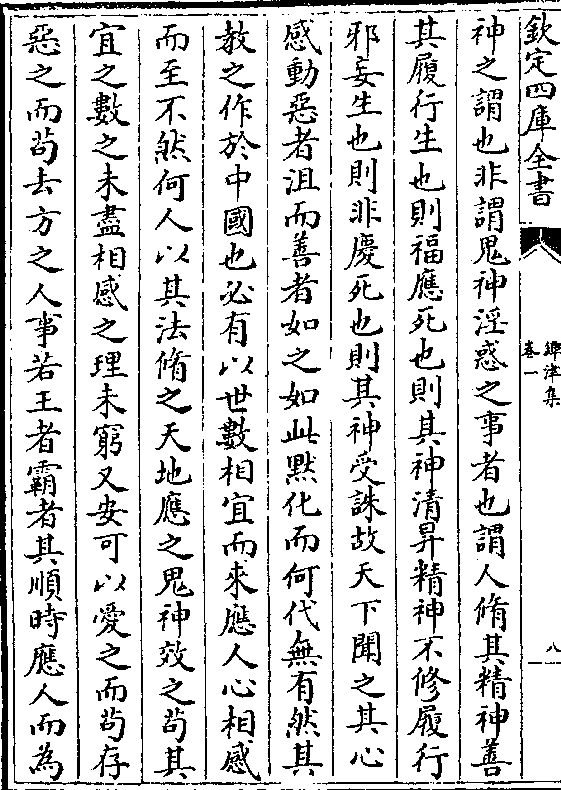 欽定四庫全書
鐔津集
卷一
八
神之謂也非謂鬼神淫惑之事者也謂人脩其精神善
其履行生也則福應死也則其神清昇精神不修履行
邪妄生也則非慶死也則其神受誅故天下聞之其心
感動惡者沮而善者如之如此默化而何代無有然其
教之作於中國也必有以世數相宜而來應人心相感
而至不然何人以其法脩之天地應之鬼神效之茍其
宜之數之未盡相感之理未窮又安可以愛之而茍存
惡之而茍去方之人事若王者霸者其順時應人而為